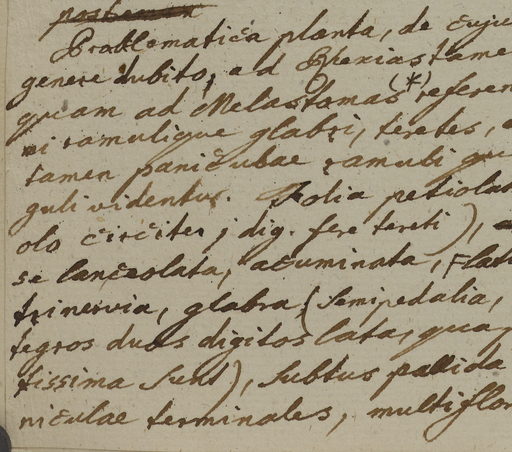 Problematica planta, de cuju
genere dubito, ad Rhexias tame
quam ad Melastomas (*) referen
ni ramulique glabri, teretes,
tamen paniculae ramuli qu
guli videntur. Folia petiolat
olo circiter j dig. fere tereti),
se lanceolata, acuminata,
trinervia, glabra (semipedalia,
tegros duos digitos lata, qua
tissima sunt), subtus pallida
niculae terminales, multiflor